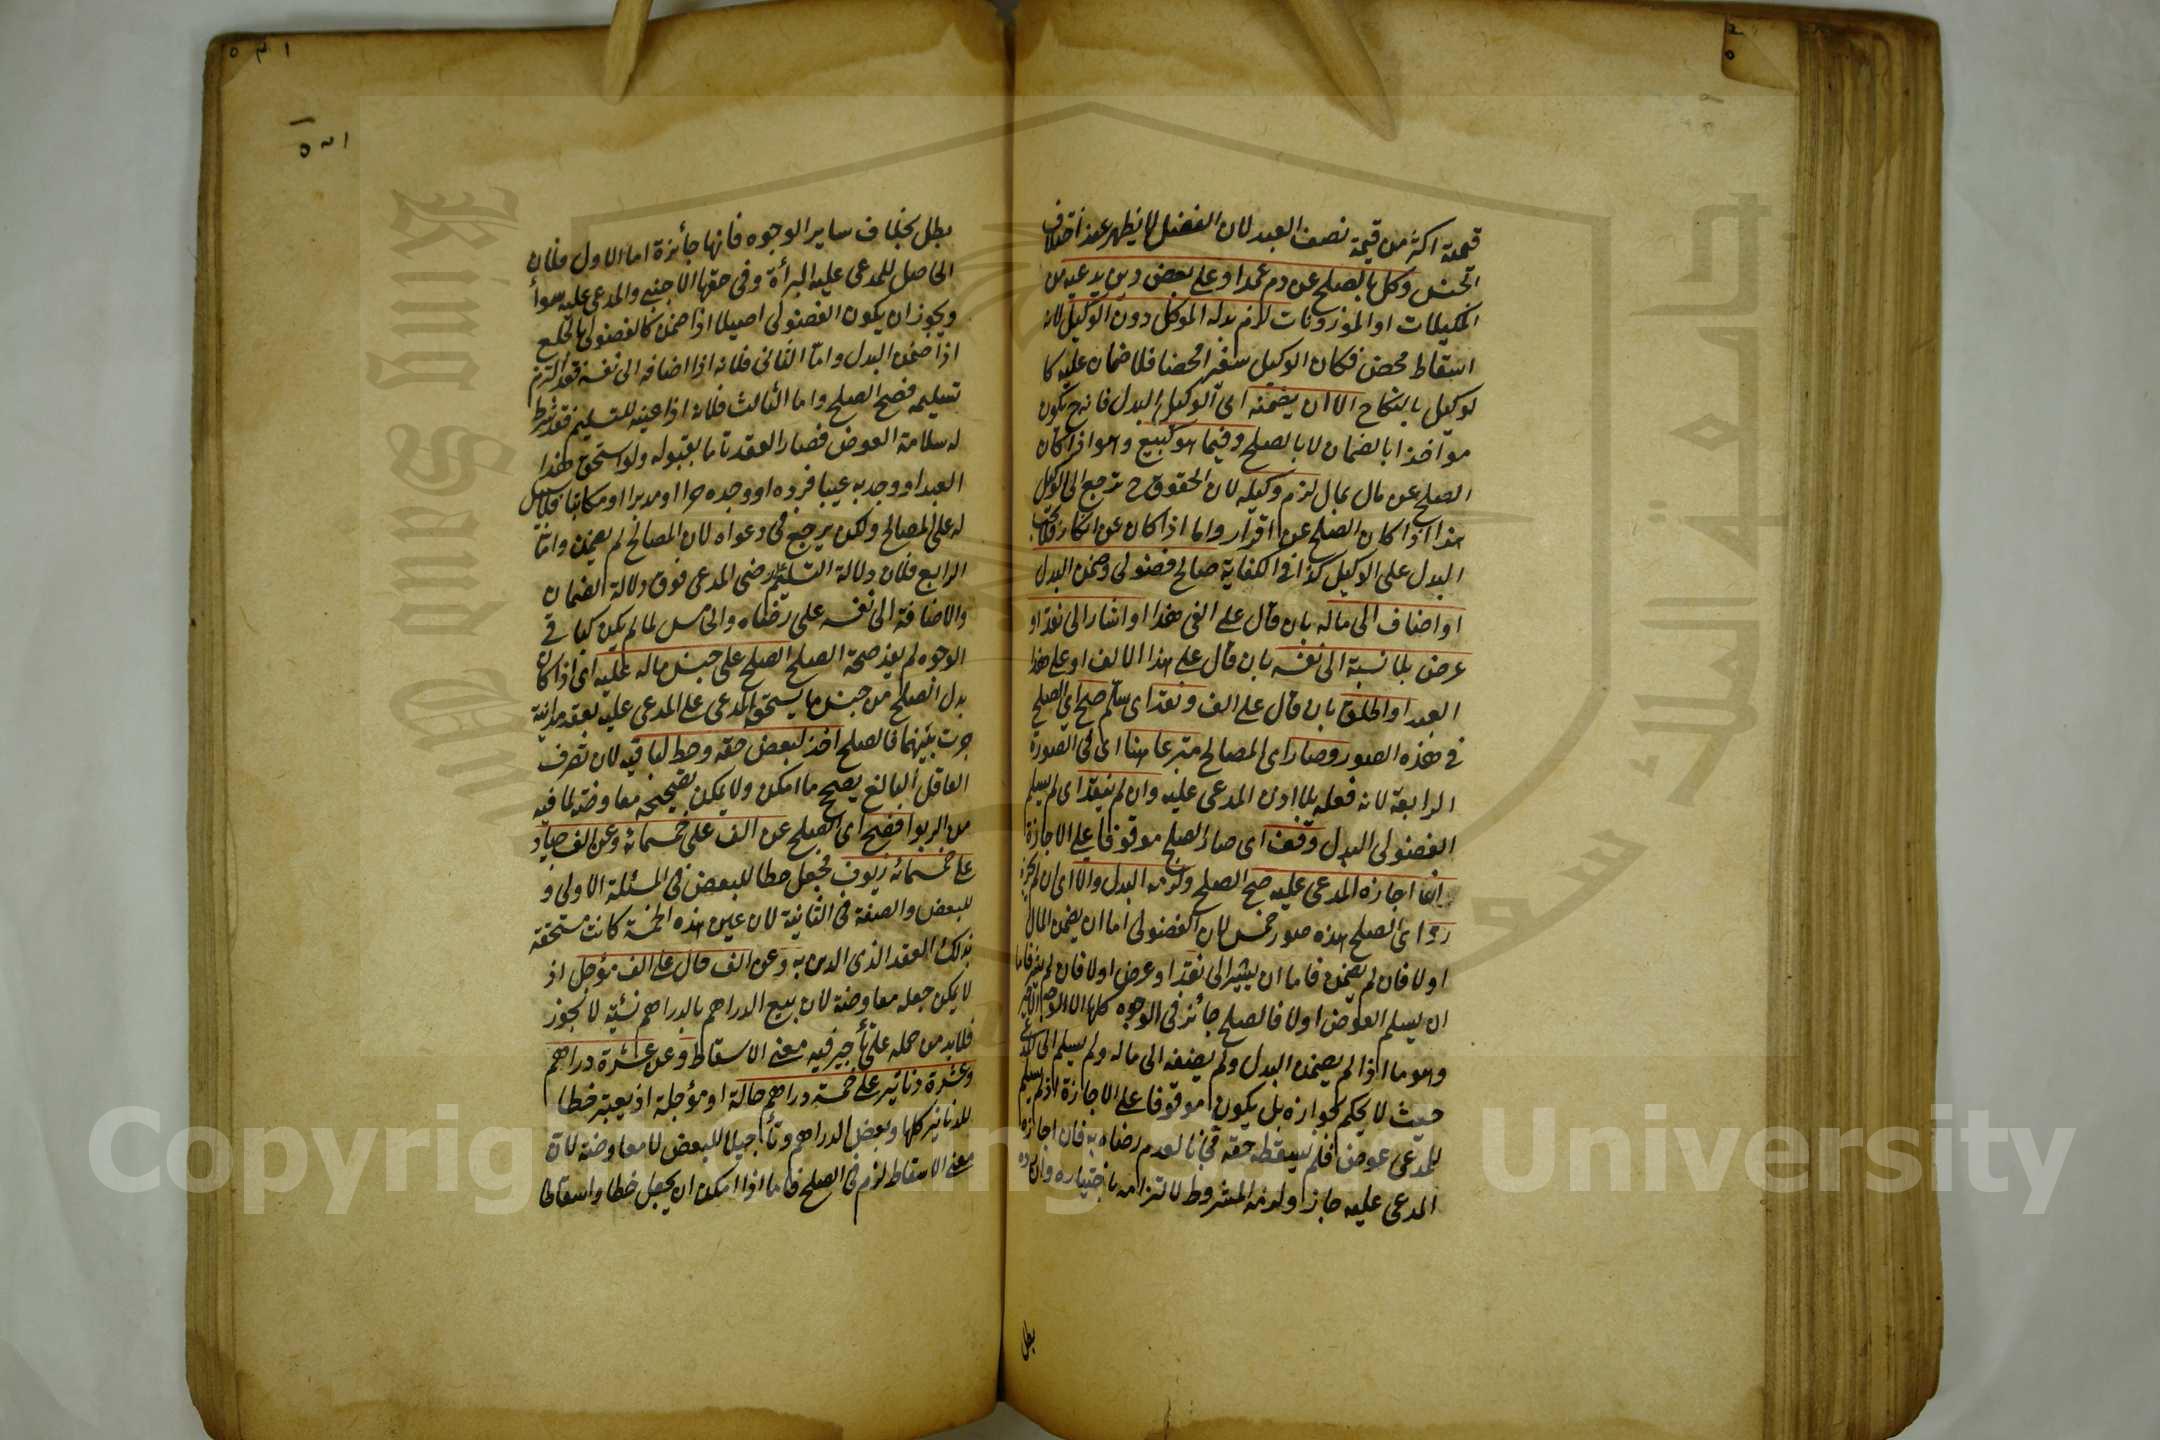 قيمته اكثر من قيمة نصف العبد لان الفضل لا يظهر عند اختلاف
الجنس وكل بالصلح عن دم عمد او على بعض دين يدعيه من
المكيلات او الموزونات لزم بدله الموكل دون الوكيل لانه
اسقاط محض فكان الوكيل سفيرا محضا فلا ضمان عليه كا
لوكيل بالنكاح الا ان يضمنه اى الوكيل البدل فانه ح يكون
مواخذا بالضمان لا بالصلح وفيما هو كبيع وهو اذا كان
الصلح عن مال بمال لزم وكيله لان الحقوق ح ترجع الى الوكيل
هذا اذا كان الصلح عن اقرار واما اذا كان عن انكار فلا يجب
البدل على الوكيل كذا فى الكفاية صالح فضولى وضمن البدل
او اضاف الى ماله بان قال على الفى هذا او اشار الى نقد او
عرض بلا نسبة الى نفسه بان قال على هذا الالف او على هذا
العبد او اطلق بان قال على الف ونقد اى سلم صح اى الصلح
فى هذه الصور وصار اى المصالح متبرعا هنا اى فى الصورة
الرابعة لانه فعله بلا اذن المدعى عليه وان لم ينقد اى لم يسلم
الفضولى البدل وقف اى صار الصلح موقوفا على الاجازة
فان اجازه المدعى عليه صح الصلح ولزمه البدل والا اى ان لم يجز
رد اى الصلح هذه صور خمس لان الفضولى اما ان يضمن المال
او لا فان لم يضمن فاما ان يشير الى نقد او عرض او لا فان لم يشر فاما
ان يسلم العوض او لا فالصلح جائز فى الوجوه كلها الا الوجه الاخير
وهو ما اذا لم يضمن البدل ولم يضفه الى ماله ولم يسلم الى المدعى
حيث لا يحكم بجوازه بل يكون موقوفا على الاجازة اذ لم يسلم
للمدعى عوض فلم يسقط حقه مجانا لعدم رضاه به فان اجازه
المدعى عليه جاز ولزمه المشروط لالتزامه باختياره وان رده
بطل
بطل بخلاف ساير الوجوه فانها جائزة اما الاول فلان
الحاصل للمدعى عليه البرائة وفى حقها الاجنبى والمدعى عليه سواء
ويجوز ان يكون الفضولى اصيلا اذا ضمن كالفضولى بالخلع
اذا ضمن البدل واما الثانى فلانه اذا اضافه الى نفسه فقد التزم
تسليمه فصح الصلح واما الثالث فلانه اذا عينه للتسليم فقد شرط
له سلامة العوض فصار العقد تاما بقبوله ولو استحق هذا
العبد او وجد به عيبا فرده او وجده حرا او مدبرا او مكاتبا فلا سبيل
له على المصالح ولكن يرجع فى دعواه لان المصالح لم يضمن واما
الرابع فلان دلالة التسليم رضى المدعى فوق دلالة الضمان
والاضافة الى نفسه على رضاه والخامس لما لم يكن كباقى
الوجوه لم يفد صحة الصلح الصلح على جنس ماله عليه اى اذا كان
بدل الصلح من جنس ما يستحق المدعى على المدعى عليه بعقد مداينة
جرت بينهما فالصلح اخذ لبعض حقه وحط لباقيه لان تصرف
العاقل البالغ يصح ما امكن ولا يمكن تصحيحه معاوضة لما فيه
من الربوا فصح اى الصلح عن الف على خمسمائة وعن الف جياد
على خمسمائة زيوف فجعل حطا للبعض فى المسئلة الاولى و
للبعض والصفة فى الثانية لان عين هذه الخمسة كانت مستحقة
بذلك العقد الذى الدين به وعن الف قال على الف مؤجل اذ
لا يمكن جعله معاوضة لان بيع الدراهم بالدراهم نسئية لا يجوز
فلا بد من حمله على تأخير فيه معنى الاسقاط وعن عشرة دراهم
وعشرة دنانير على خمسة دراهم حالة او مؤجلة اذ يعتبر حطا
للدنانير كلها وبعض الدراهم وتأجيلا للبعض لا معاوضة لان
معنى الاسقاط لزم فى الصلح فاما اذا امكن ان يجعل حطا واسقاطا